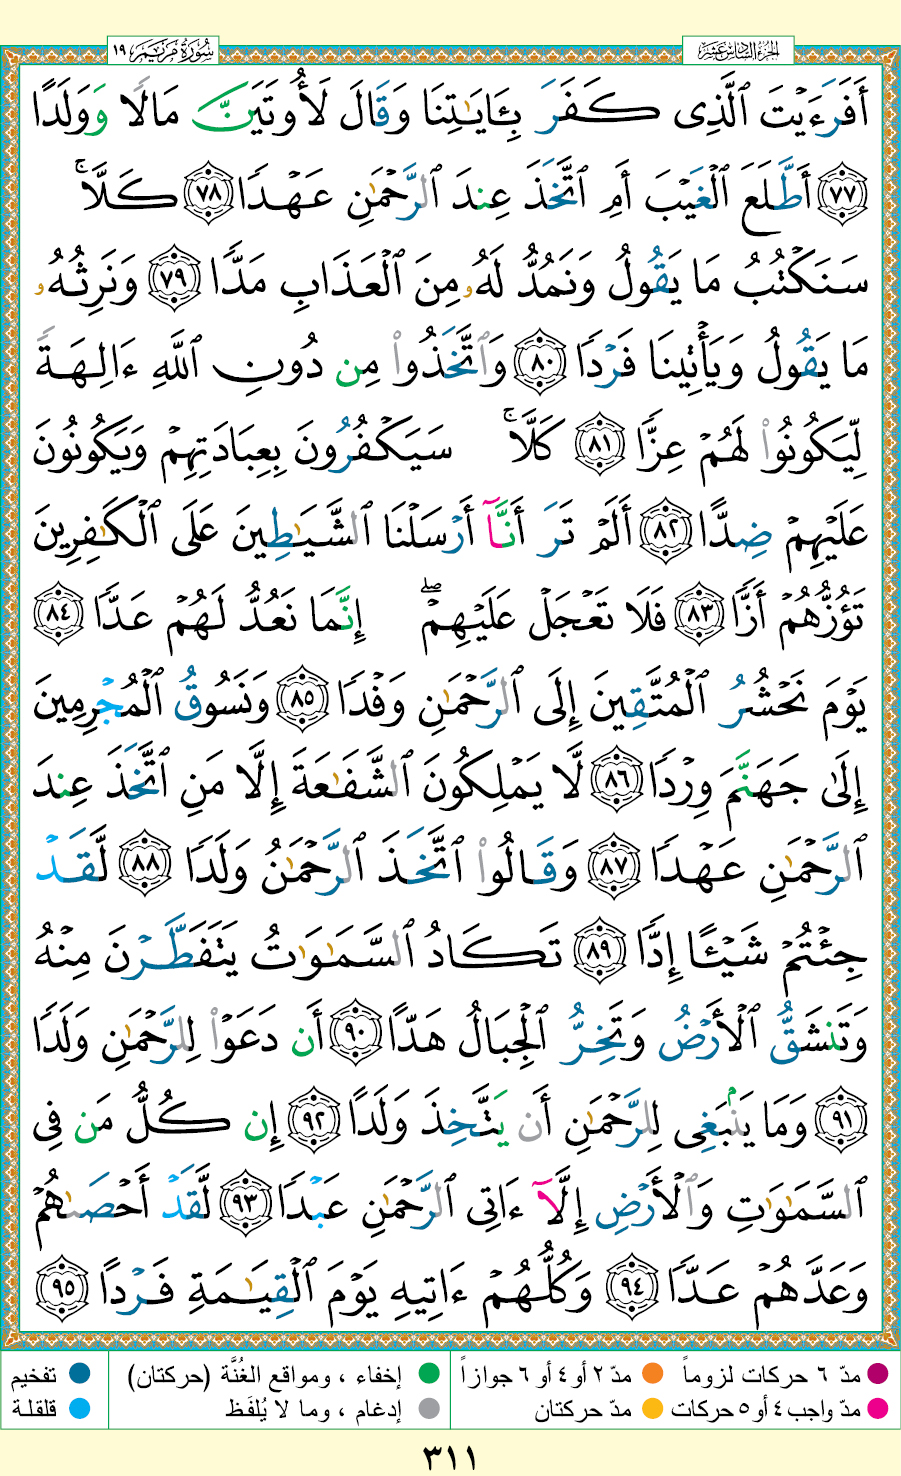 الجزء السادس عشر
سُورَةُ مَرْيَم ١٩
أَفَرَءَيْتَ ٱلَّذِى كَفَرَ بِـَٔايَـٰتِنَا وَقَالَ لَأُوتَيَنَّ مَالًا وَوَلَدًا
٧٧ أَطَّلَعَ ٱلْغَيْبَ أَمِ ٱتَّخَذَ عِندَ ٱلرَّحْمَـٰنِ عَهْدًا ٧٨ كَلَّا ۚ
سَنَكْتُبُ مَا يَقُولُ وَنَمُدُّ لَهُۥ مِنَ ٱلْعَذَابِ مَدًّا ٧٩ وَنَرِثُهُۥ
مَا يَقُولُ وَيَأْتِينَا فَرْدًا ٨٠ وَٱتَّخَذُوا۟ مِن دُونِ ٱللَّهِ ءَالِهَةً
لِّيَكُونُوا۟ لَهُمْ عِزًّا ٨١ كَلَّا ۚ سَيَكْفُرُونَ بِعِبَادَتِهِمْ وَيَكُونُونَ
عَلَيْهِمْ ضِدًّا ٨٢ أَلَمْ تَرَ أَنَّآ أَرْسَلْنَا ٱلشَّيَـٰطِينَ عَلَى ٱلْكَـٰفِرِينَ
تَؤُزُّهُمْ أَزًّا ٨٣ فَلَا تَعْجَلْ عَلَيْهِمْ ۖ إِنَّمَا نَعُدُّ لَهُمْ عَدًّا ٨٤
يَوْمَ نَحْشُرُ ٱلْمُتَّقِينَ إِلَى ٱلرَّحْمَـٰنِ وَفْدًا ٨٥ وَنَسُوقُ ٱلْمُجْرِمِينَ
إِلَىٰ جَهَنَّمَ وِرْدًا ٨٦ لَّا يَمْلِكُونَ ٱلشَّفَـٰعَةَ إِلَّا مَنِ ٱتَّخَذَ عِندَ
ٱلرَّحْمَـٰنِ عَهْدًا ٨٧ وَقَالُوا۟ ٱتَّخَذَ ٱلرَّحْمَـٰنُ وَلَدًا ٨٨ لَّقَدْ
جِئْتُمْ شَيْـًٔا إِدًّا ٨٩ تَكَادُ ٱلسَّمَـٰوَٰتُ يَتَفَطَّرْنَ مِنْهُ
وَتَنشَقُّ ٱلْأَرْضُ وَتَخِرُّ ٱلْجِبَالُ هَدًّا ٩٠ أَن دَعَوْا۟ لِلرَّحْمَـٰنِ وَلَدًا
٩١ وَمَا يَنۢبَغِى لِلرَّحْمَـٰنِ أَن يَتَّخِذَ وَلَدًا ٩٢ إِن كُلُّ مَن فِى
ٱلسَّمَـٰوَٰتِ وَٱلْأَرْضِ إِلَّآ ءَاتِى ٱلرَّحْمَـٰنِ عَبْدًا ٩٣ لَّقَدْ أَحْصَىٰهُمْ
وَعَدَّهُمْ عَدًّا ٩٤ وَكُلُّهُمْ ءَاتِيهِ يَوْمَ ٱلْقِيَـٰمَةِ فَرْدًا ٩٥
مدّ ٦ حركات لزوماً مدّ ٢ أو ٤ أو ٦ جوازاً إخفاء ، ومواقع الغُنَّة (حركتان) تفخيم
مدّ واجب ٤ أو ٥ حركات مدّ حركتان إدغام ، وما لا يُلفَظ قلقلة
٣١١